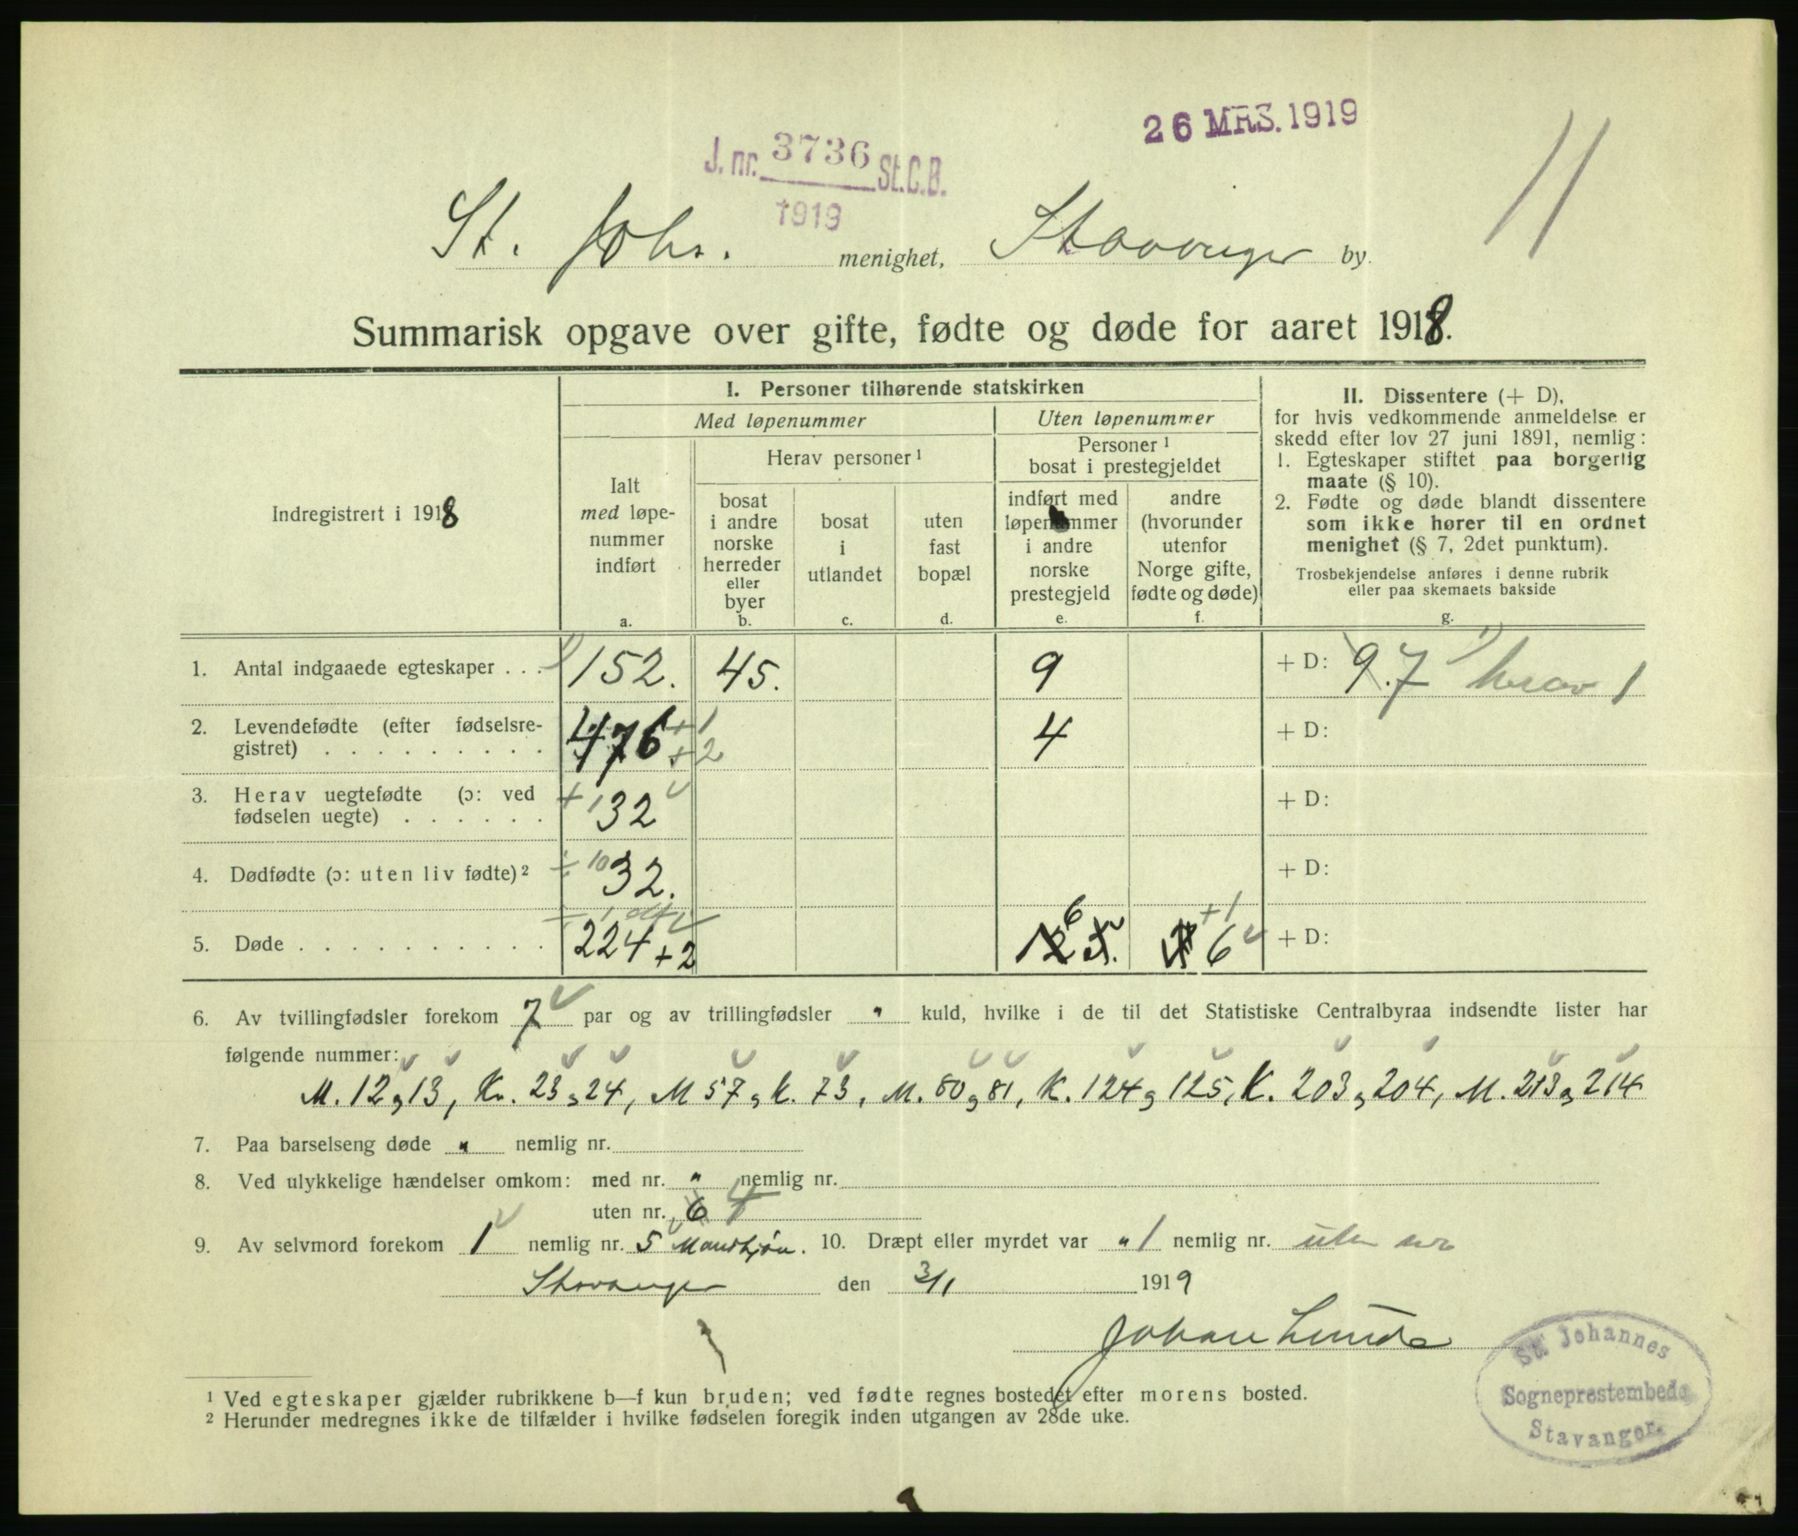 26 MRS. 1919
J. nr. 3736 St.C.B.
1919
11
St. Johs. menighet, Stavanger by.
Summarisk opgave over gifte, fødte og døde for aaret 1918.
Indregistrert i 1918
I. Personer tilhørende statskirken
Med løpenummer
Uten løpenummer
Herav personer ¹
Personer ¹
bosat i prestegjeldet
Ialt
med løpe-
nummer
indført
a.
bosat
i andre
norske
herreder
eller
byer
b.
bosat
i
utlandet
c.
uten
fast
bopæl
d.
indført med
løpenummer
i andre
norske
prestegjeld
e.
andre
(hvorunder
utenfor
Norge gifte,
fødte og døde)
f.
II. Dissentere (+ D),
for hvis vedkommende anmeldelse er
skedd efter lov 27 juni 1891, nemlig:
1. Egteskaper stiftet paa borgerlig
maate (§ 10).
2. Fødte og døde blandt dissentere
som ikke hører til en ordnet
menighet (§ 7, 2det punktum).
Trosbekjendelse anføres i denne rubrik
eller paa skemaets bakside
g.
1. Antal indgaaede egteskaper . . . 152. 45. 9 + D: 9.7 1) herav 1
2. Levendefødte (efter fødselsre-
gistret) . . . . . . . . . 476 +1 +2 4 + D:
3. Herav uegtefødte (ɔ: ved
fødselen uegte) . . . . . . +1 32 + D:
4. Dødfødte (ɔ: uten liv fødte) ² ÷ 10 32. + D:
5. Døde . . . . . . . . . . 224 +2 6 +1 6 + D:
6. Av tvillingfødsler forekom 7 par og av trillingfødsler " kuld, hvilke i de til det Statistiske Centralbyraa indsendte lister har
følgende nummer:
M. 12 og 13, Kv. 23 og 24, M 57 og K. 73, M. 80 og 81, K. 124 og 125, K. 203 og 204, M. 213 og 214
7. Paa barselseng døde " nemlig nr.
8. Ved ulykkelige hændelser omkom: med nr. " nemlig nr.
uten nr. 6
9. Av selvmord forekom 1 nemlig nr. 5 Mandkjøn. 10. Dræpt eller myrdet var " 1 nemlig nr. uten nr
Stavanger den 3/1 1919
Johan Lunde
St. Johannes
Sogneprestembede
Stavanger.
¹ Ved egteskaper gjælder rubrikkene b—f kun bruden; ved fødte regnes bostedet efter morens bosted.
² Herunder medregnes ikke de tilfælder i hvilke fødselen foregik inden utgangen av 28de uke.